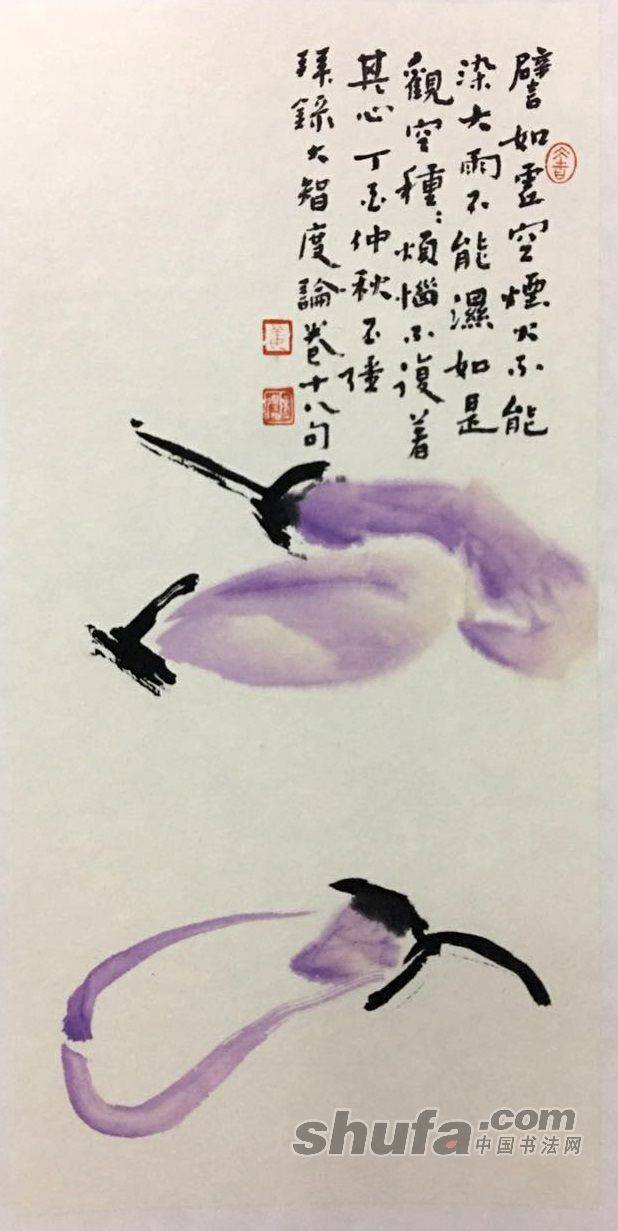 譬如虛空煙火不能
染大雨不能濕如是
觀空種:煩惱不復着
其心丁酉仲秋不
拜錄大智度論卷十八句
shufa.com
中国书法网